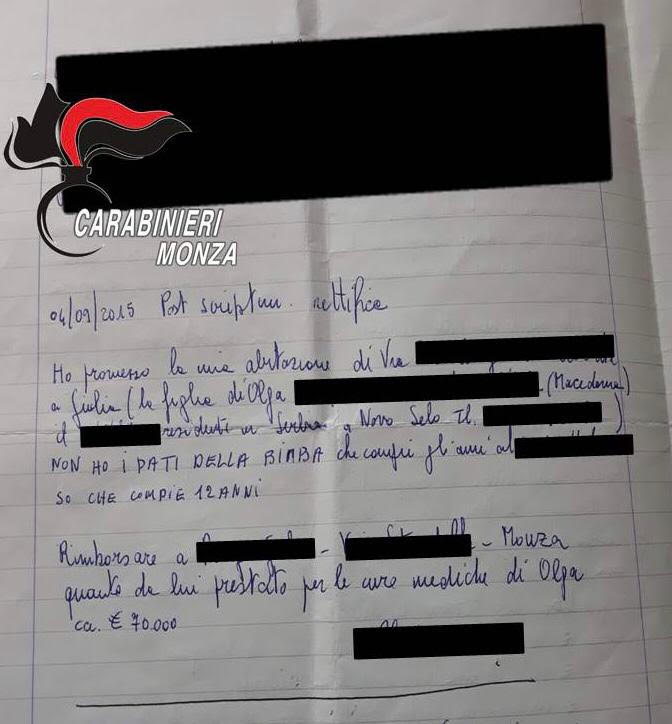 CARABINIERI
MONZA
04/09/2015 Post scriptum. rettifica
Ho promesso la mia abitazione di Via
a Giulia (la figlia di Olga (Macedonia)
il residenti in Serbia a Novo Selo Tl. )
NON HO I DATI DELLA BIMBA che compie gli anni al
SO CHE COMPIE 12 ANNI
Rimborsare a - - Monza
quanto da lui prestato per le cure mediche di Olga
ca. € 70.000